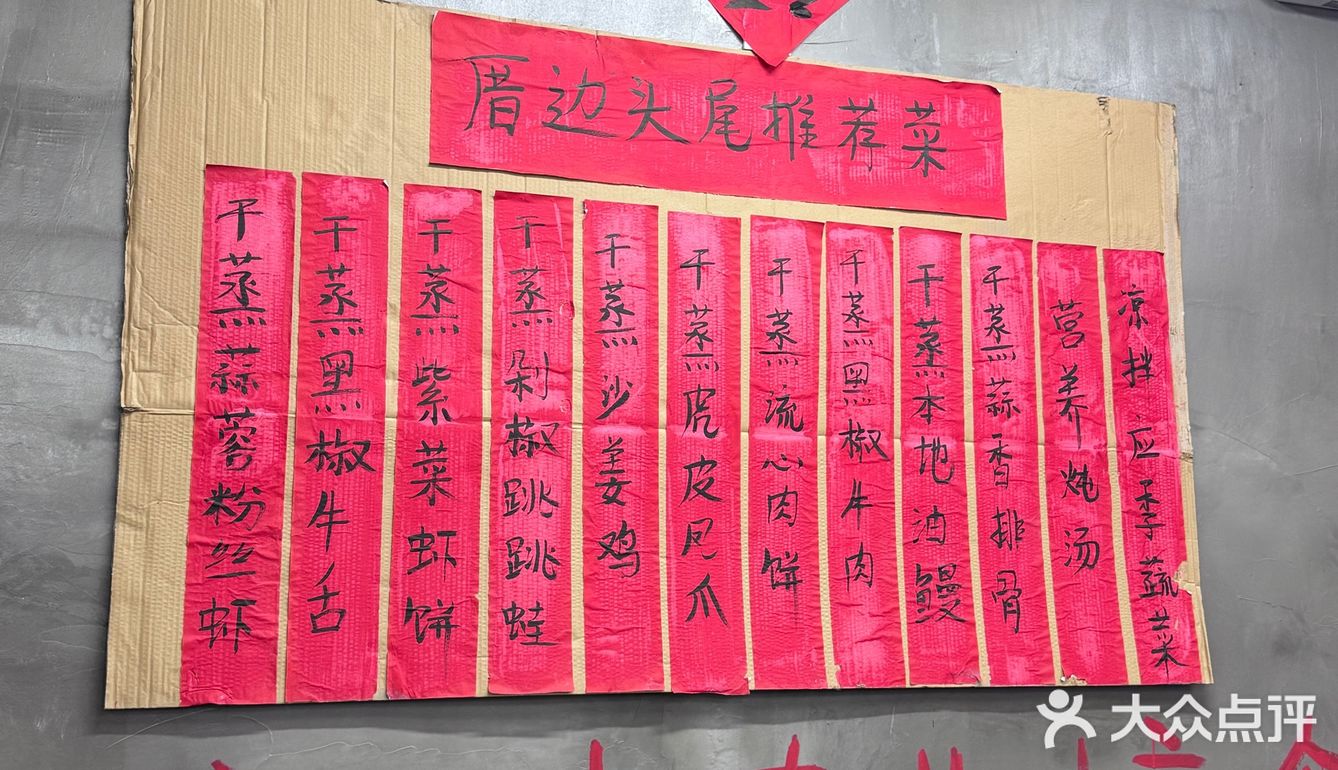 厝边头尾推荐菜
干蒸蒜蓉粉丝虾
干蒸黑椒牛舌
干蒸紫菜虾饼
干蒸剁椒跳跳蛙
干蒸沙姜鸡
干蒸虎皮凤爪
干蒸流心肉饼
干蒸黑椒牛肉
干蒸本地酒鳗
干蒸蒜香排骨
营养炖汤
凉拌应季蔬菜
大众点评